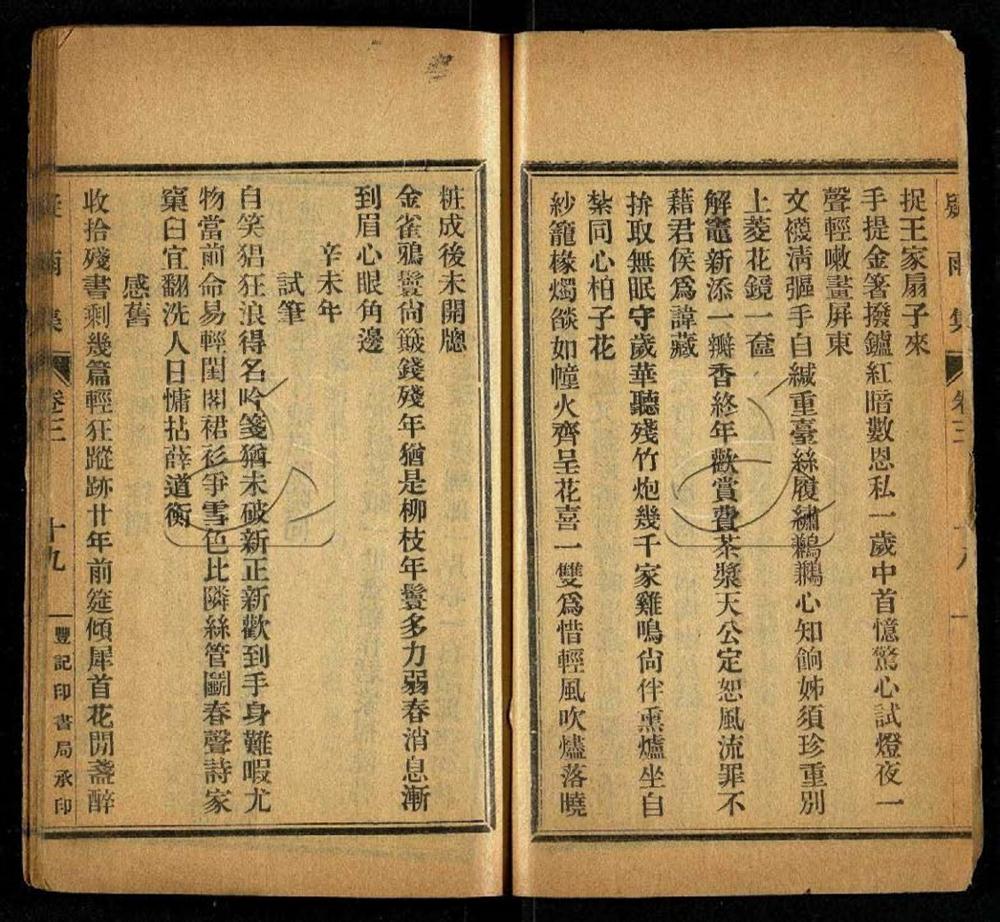 疑雨集 卷三 十八
捉王家扇子來
手提金箸撥鑪紅暗數恩私一歲中首憶驚心試燈夜一
聲輕嗽畫屏東
文襪清彄手自緘重臺絲履繡鶼鶼心知餉姊須珍重別
上菱花鏡一奩
解竈新添一瓣香終年歡賞費茶漿天公定恕風流罪不
藉君侯爲諱藏
拚取無眠守歲華聽殘竹炮幾千家雞鳴尙伴熏爐坐自
紮同心柏子花
紗籠椽燭燄如幢火齊呈花喜一雙爲惜輕風吹燼落曉
粧成後未開牕
金雀鴉鬟尙簸錢殘年猶是柳枝年鬟多力弱春消息漸
到眉心眼角邊
辛未年
試筆
自笑猖狂浪得名吟箋猶未破新正新歡到手身難暇尤
物當前命易輕閨閣裙衫爭雪色比隣絲管鬭春聲詩家
窠臼宜翻洗人日慵拈薛道衡
感舊
收拾殘書剩幾篇輕狂蹤跡廿年前筵傾犀首花閒盞醉
疑雨集 卷三 十九 豐記印書局承印